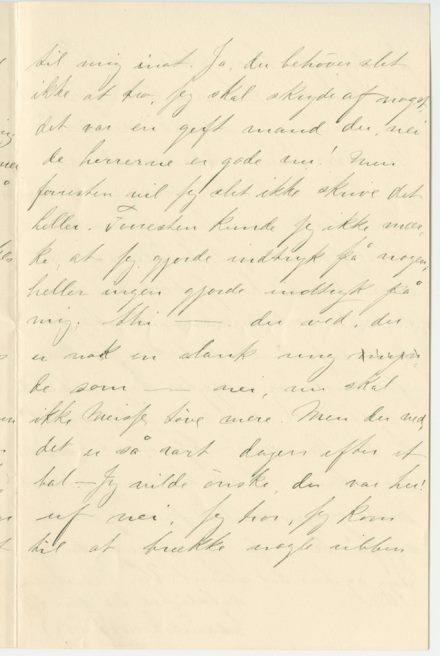 til mig inat. Ja, du behöver slet
ikke at tro, jeg skal skryde af noget,
det var en gift mand du, nei
de herrerne er gode nu! Men
forresten vil jeg slet ikke skrive det
heller. Forresten kunde jeg ikke mær-
ke, at jeg gjorde indtryk på nogen,
heller ingen gjorde indtryk på
mig. Hhi — du ved, der
er nok en slank ung
de som — nei, nu skal
ikke tøve mere. Men du ved,
det er så rart dagen efter et
bal — Jeg vilde ønske, du var her!
uf nei, jeg tror, jeg kom
til at brække nogle ribben